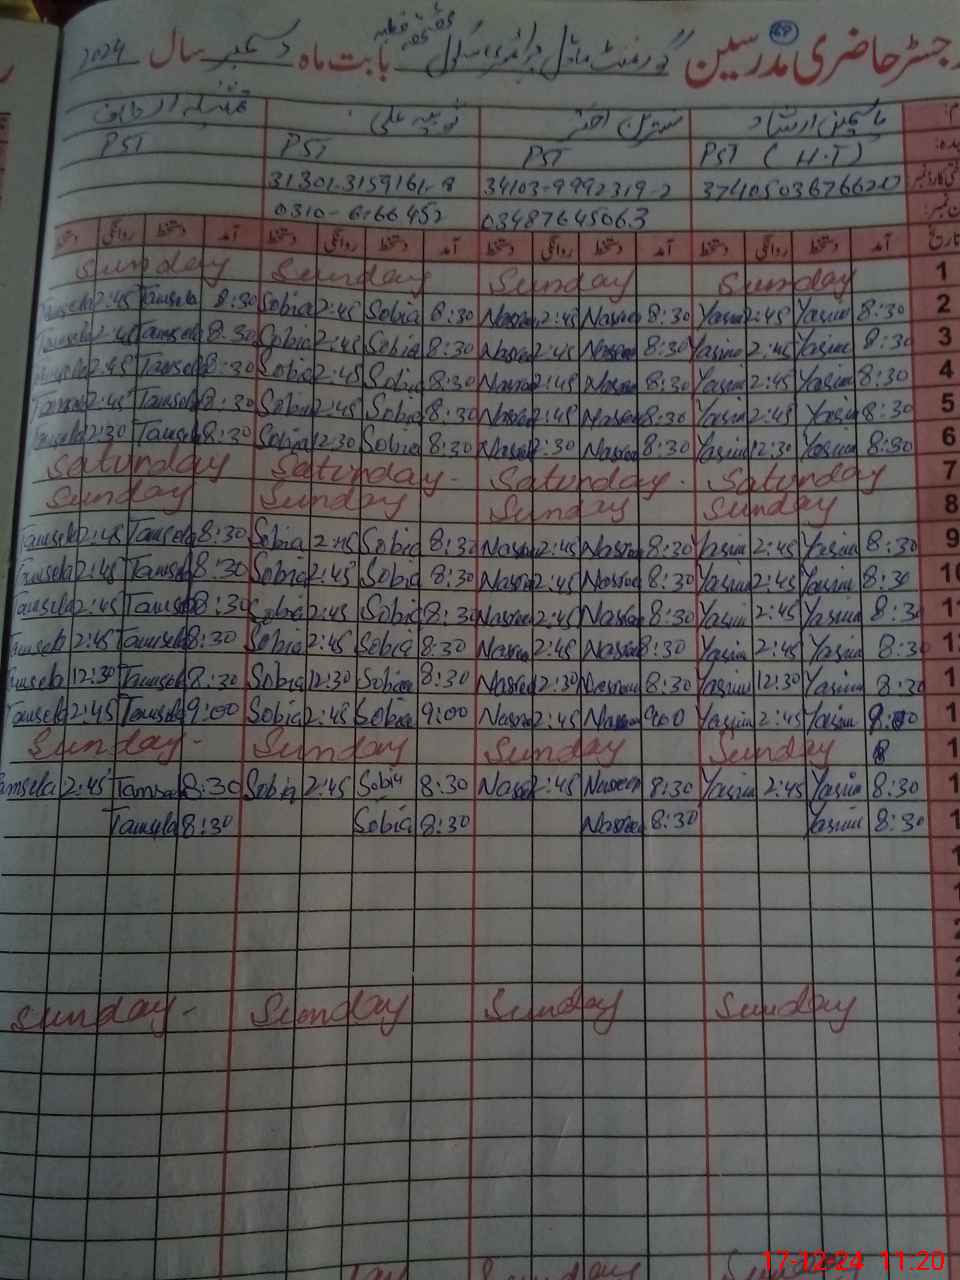 رجسٹر حاضری مدرسین گورنمنٹ ماڈل پرائمری سکول بابت ماہ دسمبر سال 2024
یاسمین ارشاد نسرین اختر ثوبیہ علی
PST (H.T) PST PST PST
34103-9992319-2 31301-3159161-8
03487645063 0310-6166452
تاریخ آمد دستخط روانگی دستخط آمد دستخط روانگی دستخط آمد دستخط روانگی دستخط آمد دستخط روانگی دستخط
Sunday Sunday Sunday Sunday 1
Tamsela 2:45 Tamsela 8:30 Sobia 2:45 Sobia 8:30 Nasreen 2:45 Nasreen 8:30 Yasmin 2:45 Yasmin 8:30 2
Tamsela 2:45 Tamsela 8:30 Sobia 2:45 Sobia 8:30 Nasreen 2:45 Nasreen 8:30 Yasmin 2:45 Yasmin 8:30 3
Tamsela 2:45 Tamsela 8:30 Sobia 2:45 Sobia 8:30 Nasreen 2:45 Nasreen 8:30 Yasmin 2:45 Yasmin 8:30 4
Tamsela 2:45 Tamsela 8:30 Sobia 2:45 Sobia 8:30 Nasreen 2:45 Nasreen 8:30 Yasmin 2:45 Yasmin 8:30 5
Tamsela 12:30 Tamsela 8:30 Sobia 12:30 Sobia 8:30 Nasreen 12:30 Nasreen 8:30 Yasmin 12:30 Yasmin 8:30 6
Saturday Saturday - Saturday - Saturday 7
Sunday Sunday Sunday Sunday 8
Tamsela 2:45 Tamsela 8:30 Sobia 2:45 Sobia 8:30 Nasreen 2:45 Nasreen 8:30 Yasmin 2:45 Yasmin 8:30 9
Tamsela 2:45 Tamsela 8:30 Sobia 2:45 Sobia 8:30 Nasreen 2:45 Nasreen 8:30 Yasmin 2:45 Yasmin 8:30 10
Tamsela 2:45 Tamsela 8:30 Sobia 2:45 Sobia 8:30 Nasreen 2:45 Nasreen 8:30 Yasmin 2:45 Yasmin 8:30 1
Tamsela 2:45 Tamsela 8:30 Sobia 2:45 Sobia 8:30 Nasreen 2:45 Nasreen 8:30 Yasmin 2:45 Yasmin 8:30 1
Tamsela 12:30 Tamsela 8:30 Sobia 12:30 Sobia 8:30 Nasreen 12:30 Nasreen 8:30 Yasmin 12:30 Yasmin 8:30 1
Tamsela 2:45 Tamsela 9:00 Sobia 2:45 Sobia 9:00 Nasreen 2:45 Nasreen 9:00 Yasmin 2:45 Yasmin 9:00 1
Sunday - Sunday Sunday Sunday 1
Tamsela 2:45 Tamsela 8:30 Sobia 2:45 Sobia 8:30 Nasreen 2:45 Nasreen 8:30 Yasmin 2:45 Yasmin 8:30 1
Tamsela 8:30 Sobia 8:30 Nasreen 8:30 Yasmin 8:30 1
1
1
2
2
Sunday - Sunday Sunday Sunday 2
Sunday Sunday
17-12-24 11:20